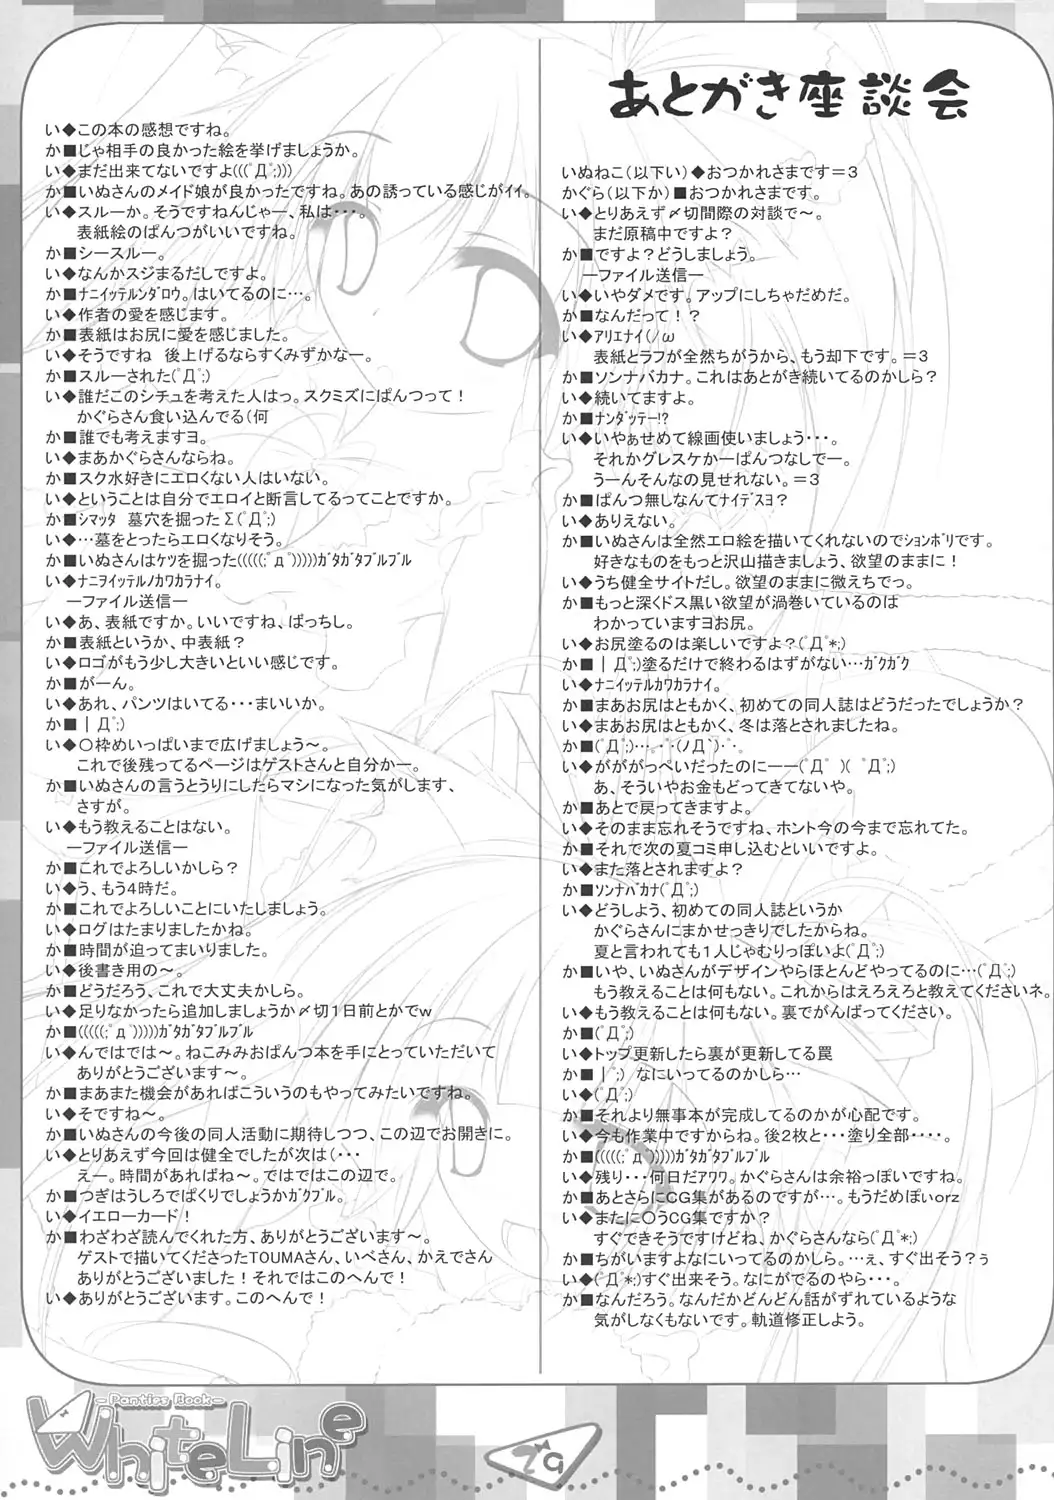 あとがき座談会
いぬねこ(以下い)◆おつかれさまです＝３
かぐら(以下か)■おつかれさまです。
い◆とりあえず〆切間際の対談で～。
まだ原稿中ですよ？
か■ですよ？どうしましょう。
―ファイル送信―
い◆いやダメです。アップにしちゃだめだ。
か■なんだって！？
い◆アリエナイ(ノω
表紙とラフが全然ちがうから、もう却下です。＝３
か■ソンナバカナ。これはあとがき続いてるのかしら？
い◆続いてますよ。
か■ﾅﾝﾀﾞｯﾃｰ!?
い◆いやぁせめて線画使いましょう・・・。
それかグレスケかーぱんつなしでー。
うーんそんなの見せれない。＝３
か■ぱんつ無しなんてﾅｲﾃﾞｽﾖ？
い◆ありえない。
か■いぬさんは全然エロ絵を描いてくれないのでｼｮﾝﾎﾞﾘです。
好きなものをもっと沢山描きましょう、欲望のままに！
い◆うち健全サイトだし。欲望のままに微えちでっ。
か■もっと深くドス黒い欲望が渦巻いているのは
わかっていますヨお尻。
い◆お尻塗るのは楽しいですよ？(ﾟДﾟ*;)
か■｜Дﾟ;)塗るだけで終わるはずがない…ｶﾞｸｶﾞｸ
い◆ﾅﾆｲｯﾃﾙｶﾜｶﾗﾅｲ。
か■まあお尻はともかく、初めての同人誌はどうだったでしょうか？
い◆まあお尻はともかく、冬は落とされましたね。
か■(ﾟДﾟ;)…｡･ﾟ･(ノД`)･ﾟ･｡
い◆がががっぺいだったのにーー(ﾟДﾟ )( ﾟДﾟ;)
あ、そういやお金もどってきてないや。
か■あとで戻ってきますよ。
い◆そのまま忘れそうですね、ホント今の今まで忘れてた。
か■それで次の夏コミ申し込むといいですよ。
い◆また落とされますよ？
か■ｿﾝﾅﾊﾞｶﾅ(ﾟДﾟ;)
い◆どうしよう、初めての同人誌というか
かぐらさんにまかせっきりでしたからね。
夏と言われても１人じゃむりっぽいよ(ﾟДﾟ;)
か■いや、いぬさんがデザインやらほとんどやってるのに…(ﾟДﾟ;)
もう教えることは何もない。これからはえろえろと教えてくださいネ。
い◆もう教えることは何もない。裏でがんばってください。
か■(ﾟДﾟ;)
い◆トップ更新したら裏が更新してる罠
か■｜ﾟ;) なにいってるのかしら…
い◆(ﾟДﾟ;)
か■それより無事本が完成してるのかが心配です。
い◆今も作業中ですからね。後２枚と・・・塗り全部・・・・。
か■(((((;ﾟдﾟ)))))ｶﾞﾀｶﾞﾀﾌﾞﾙﾌﾞﾙ
い◆残り・・・何日だアワワ。かぐらさんは余裕っぽいですね。
か■あとさらにＣＧ集があるのですが…。もうだめぽぃorz
い◆またに〇うＣＧ集ですか？
すぐできそうですけどね、かぐらさんなら(ﾟДﾟ*;)
か■ちがいますよなにいってるのかしら。…ぇ、すぐ出そう？ぅ
い◆(ﾟДﾟ*;)すぐ出来そう。なにがでるのやら・・・。
か■なんだろう。なんだかどんどん話がずれているような
気がしなくもないです。軌道修正しよう。
い◆この本の感想ですね。
か■じゃ相手の良かった絵を挙げましょうか。
い◆まだ出来てないですよ(((ﾟДﾟ;)))
か■いぬさんのメイド娘が良かったですね。あの誘っている感じがｲｲ。
い◆スルーか。そうですねんじゃー、私は・・・。
表紙絵のぱんつがいいですね。
か■シースルー。
い◆なんかスジまるだしですよ。
か■ﾅﾆｲｯﾃﾙﾝﾀﾞﾛｳ。はいてるのに…。
い◆作者の愛を感じます。
か■表紙はお尻に愛を感じました。
い◆そうですね　後上げるならすくみずかなー。
か■スルーされた(ﾟДﾟ;)
い◆誰だこのシチュを考えた人はっ。スクミズにぱんつって！
かぐらさん食い込んでる(何
か■誰でも考えますヨ。
い◆まあかぐらさんならね。
か■スク水好きにエロくない人はいない。
い◆ということは自分でエロイと断言してるってことですか。
か■ｼﾏｯﾀ　墓穴を掘ったΣ(ﾟДﾟ;)
い◆…墓をとったらエロくなりそう。
か■いぬさんはｹﾂを掘った(((((;ﾟдﾟ)))))ｶﾞﾀｶﾞﾀﾌﾞﾙﾌﾞﾙ
い◆ﾅﾆｦｲｯﾃﾙﾉｶﾜｶﾗﾅｲ。
―ファイル送信―
い◆あ、表紙ですか。いいですね、ばっちし。
か■表紙というか、中表紙？
い◆ロゴがもう少し大きいといい感じです。
か■がーん。
い◆あれ、パンツはいてる・・・まいいか。
か■｜Дﾟ;)
い◆〇枠めいっぱいまで広げましょう～。
これで後残ってるページはゲストさんと自分かー。
か■いぬさんの言うとうりにしたらマシになった気がします、
さすが。
い◆もう教えることはない。
―ファイル送信―
か■これでよろしいかしら？
い◆う、もう４時だ。
か■これでよろしいことにいたしましょう。
い◆ログはたまりましたかね。
か■時間が迫ってまいりました。
い◆後書き用の～。
か■どうだろう、これで大丈夫かしら。
い◆足りなかったら追加しましょうか〆切１日前とかでｗ
か■(((((;ﾟдﾟ)))))ｶﾞﾀｶﾞﾀﾌﾞﾙﾌﾞﾙ
い◆んではでは～。ねこみみおぱんつ本を手にとっていただいて
ありがとうございます～。
か■まあまた機会があればこういうのもやってみたいですね。
い◆そですね～。
か■いぬさんの今後の同人活動に期待しつつ、この辺でお開きに。
い◆とりあえず今回は健全でしたが次は(・・・
えー。時間があればね～。ではではこの辺で。
か■つぎはうしろでぱくりでしょうかｶﾞｸﾌﾞﾙ。
い◆イエローカード！
か■わざわざ読んでくれた方、ありがとうございます～。
ゲストで描いてくださったTOUMAさん、いべさん、かえでさん
ありがとうございました！それではこのへんで！
い◆ありがとうございます。このへんで！
-Panties Book-
WhiteLine
29